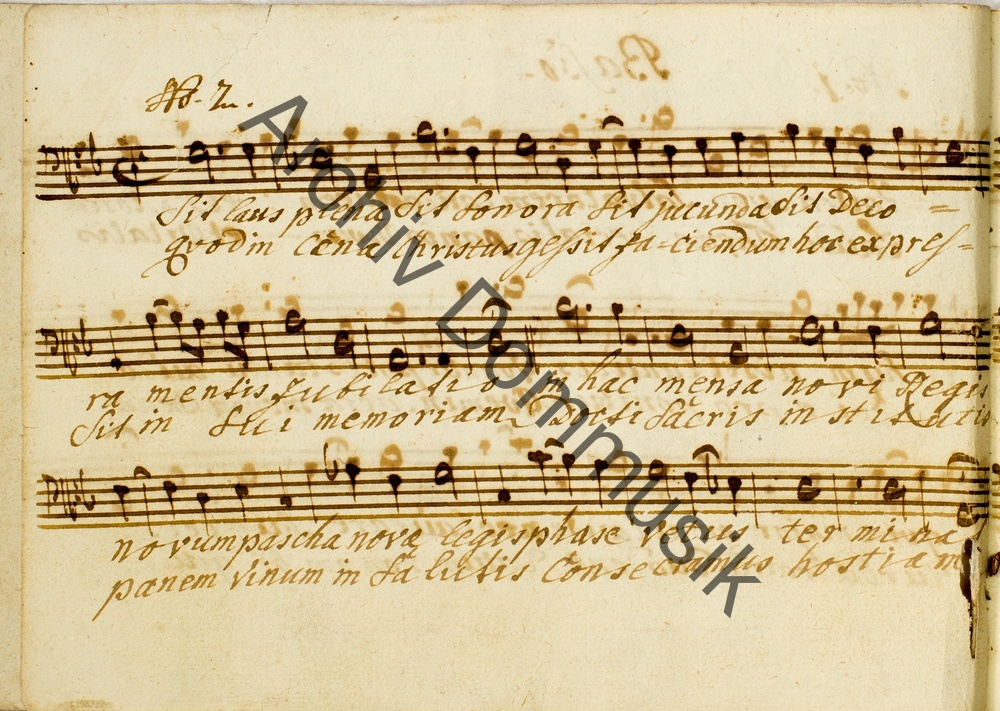 No. 2.
Sit laus plena Sit Sonora Sit jucunda Sit Deco =
quod in Cena Christus gessit fa = ciendum hoc expres =
ra mentis Jubilatio In hac mensa novi Regis
Sit in Sui memoriam Docti Sacris institutis
novum pascha novę legis phase vetus termina
panem vinum in Salutis Consecramus hostiam
Archiv Dommusik